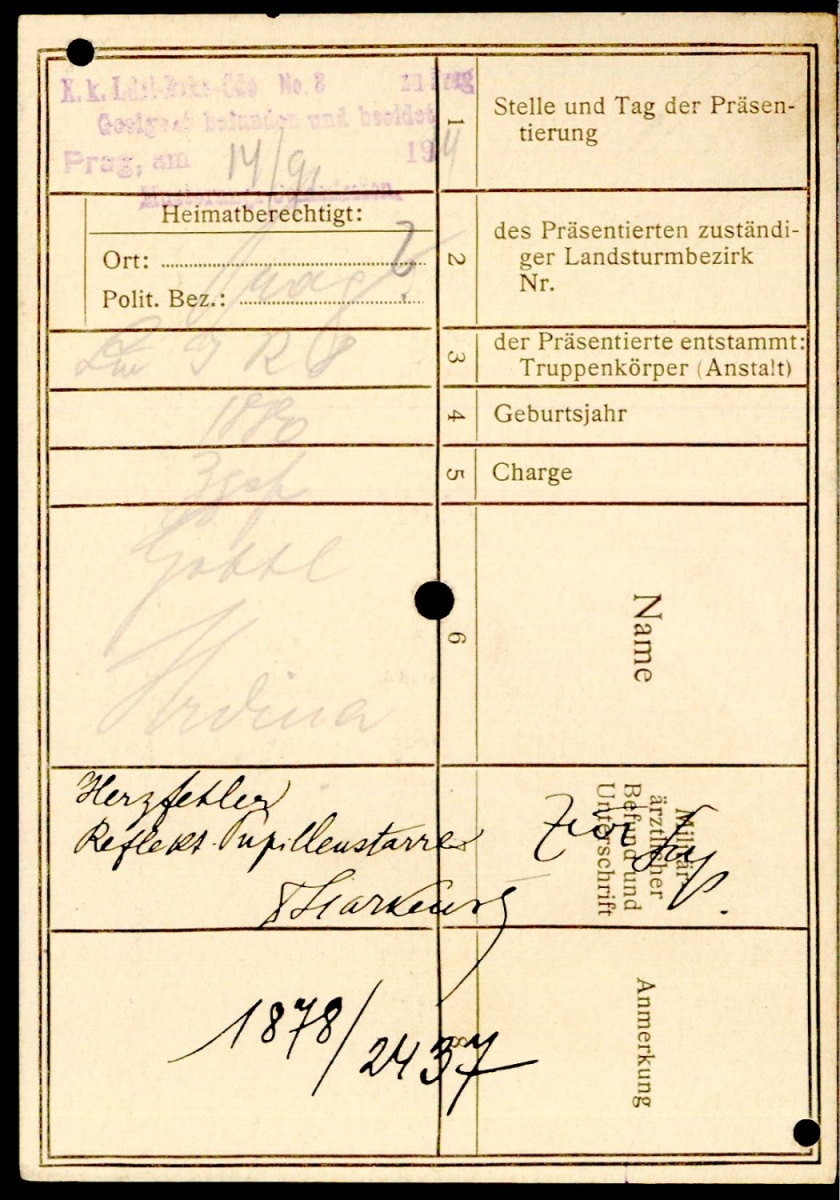 K. k. Ldst-Bzks-Cdo No. 8 in Prag
Geeignet befunden und beeidet
Prag, am 14/9 19
Musterungs-Commission.
1 Stelle und Tag der Präsen-
tierung
Heimatberechtigt:
Ort:
Polit. Bez.:
Prag
2 des Präsentierten zuständi-
ger Landsturmbezirk
Nr.
Lw I R 8
3 der Präsentierte entstammt:
Truppenkörper (Anstalt)
1880
4 Geburtsjahr
Zgsf
5 Charge
Gottl
Hrdina
6
Name
Herzfehler
Reflekt. Pupillenstarre
Militär-
ärztlicher
Befund und
Unterschrift
1878/2437
8
Anmerkung